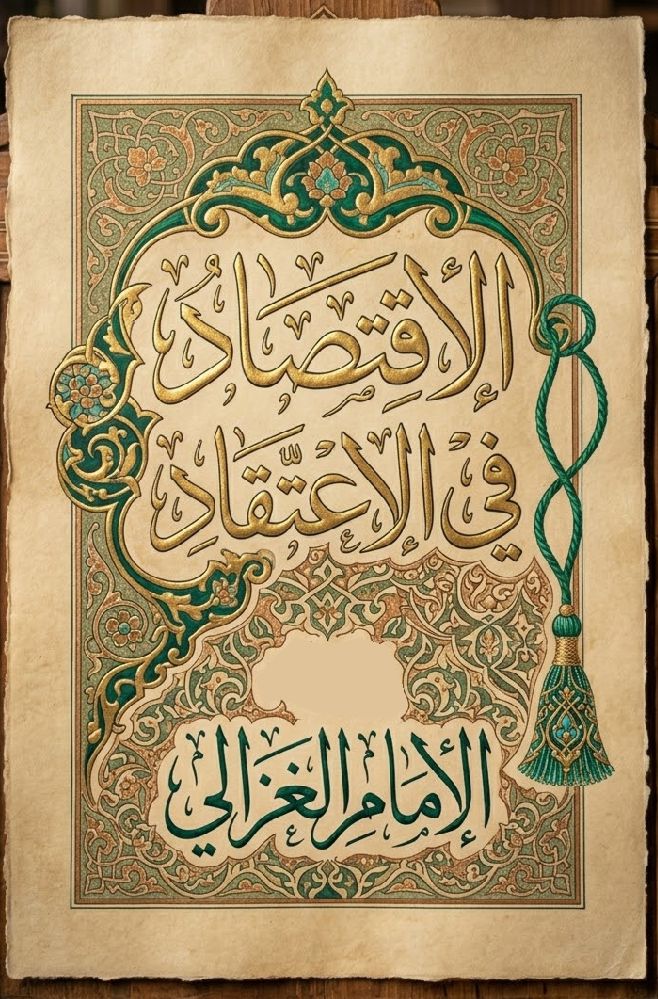 الإقتِصَادُ
في الإعتَّقادِ
الإمَامِ الغَزَالي